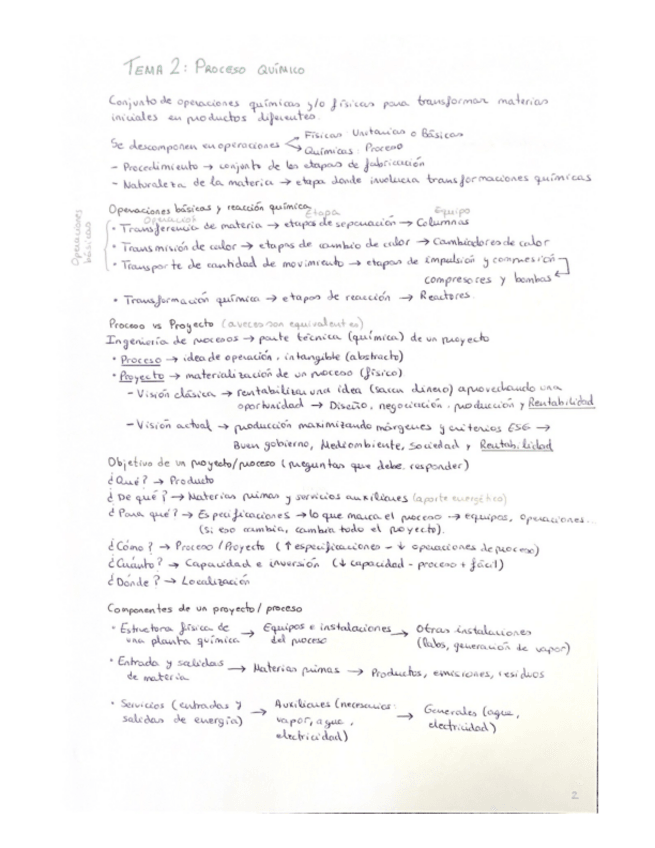 TEMA 2: PROCESO QUÍMICO
Conjunto de operaciones químicas y/o físicas para transformar materias
iniciales en productos diferentes.
Se descomponen en operaciones
Físicas: Unitarias o Básicas
Químicas: Proceso
- Procedimiento → conjunto de las etapas de fabricación
- Naturaleza de la materia → etapa donde involucra transformaciones químicas
Operaciones básicas y reacción química
Operación Etapa Equipo
Operaciones básicas
• Transferencia de materia → etapas de separación → Columnas
• Transmisión de calor → etapas de cambio de calor → Cambiadores de calor
• Transporte de cantidad de movimiento → etapas de impulsión y compresión
compresores y bombas ←
• Transformación química → etapas de reacción → Reactores.
Proceso vs Proyecto (a veces son equivalentes)
Ingeniería de procesos → parte técnica (química) de un proyecto
• Proceso → idea de operación, intangible (abstracto)
• Proyecto → materialización de un proceso (físico).
- Visión clásica → rentabilizar una idea (sacar dinero) aprovechando una
oportunidad → Diseño, negociación, producción y Rentabilidad
- Visión actual → producción maximizando márgenes y criterios ESG →
Buen gobierno, Medioambiente, Sociedad y Rentabilidad
Objetivo de un proyecto/proceso (preguntas que debe responder)
¿Qué? → Producto
¿De qué? → Materias primas y servicios auxiliares (aporte energético)
¿Para qué? → Especificaciones → lo que marca el proceso → equipos, operaciones...
(si eso cambia, cambia todo el proyecto).
¿Cómo? → Proceso/Proyecto (↑ especificaciones - ↓ operaciones de proceso)
¿Cuánto? → Capacidad e inversión (↓ capacidad - proceso + fácil)
¿Dónde? → Localización
Componentes de un proyecto/proceso
• Estructura física de una planta química → Equipos e instalaciones del proceso → Otras instalaciones (labs, generación de vapor)
• Entrada y salidas de materia → Materias primas → Productos, emisiones, residuos
• Servicios (entradas y salidas de energía) → Auxiliares (necesarios: vapor, agua, electricidad) → Generales (agua, electricidad)
2